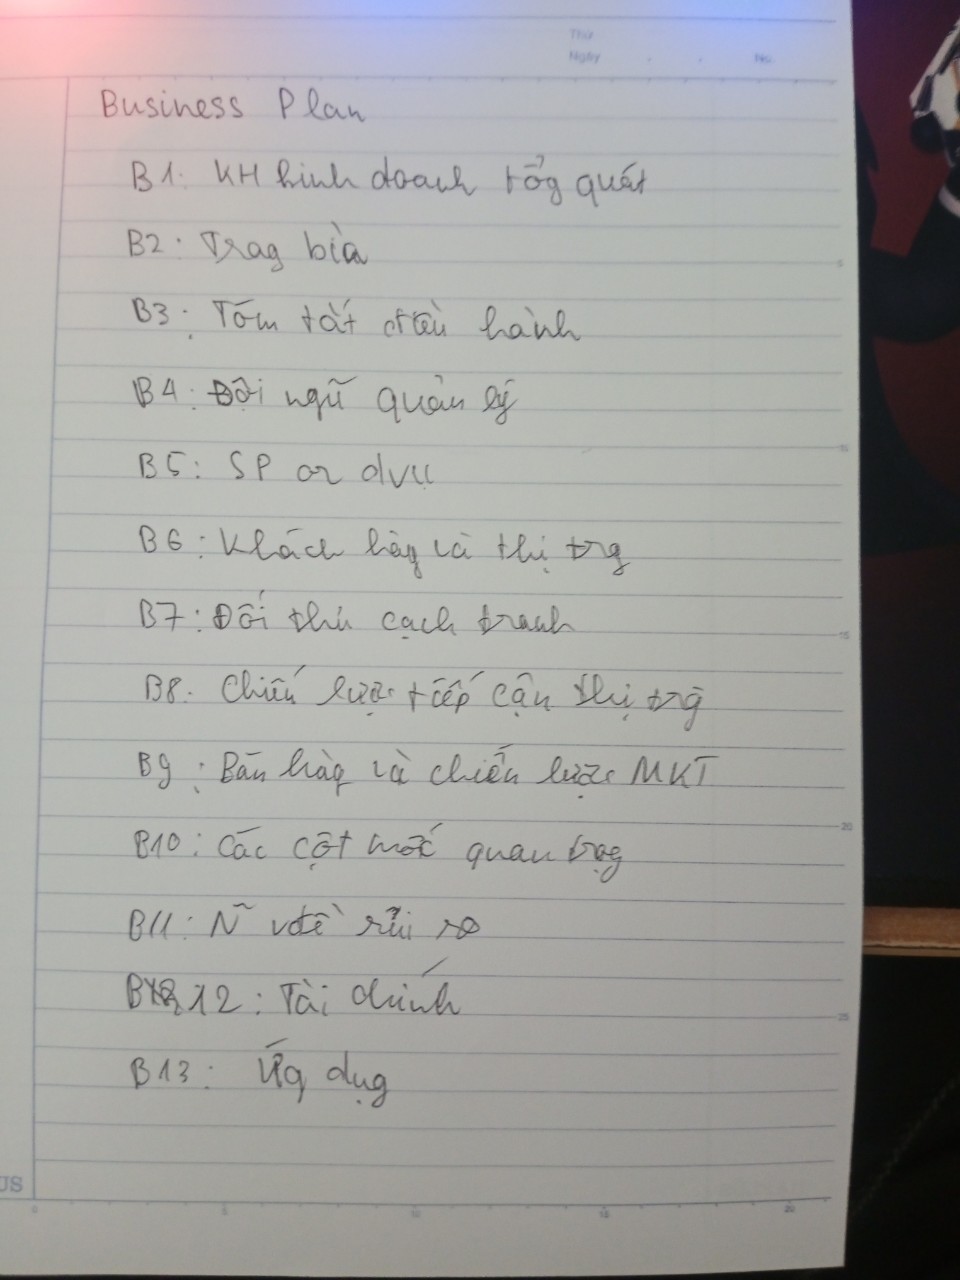 Thứ
Ngày . . No.
Business Plan
B1: KH kinh doanh tổg quát
B2: Trag bìa
B3: Tóm tắt điều hành
B4: Đội ngũ quản lý
B5: SP or dvụ
B6: Khách hàg và thị trg
B7: Đối thủ cạch tranh
B8. Chiến lược tiếp cận thị trg
B9: Bán hàg và chiến lược MKT
B10: Các cột mốc quan trọg
B11: N~ vđề rủi ro
B12: Tài chính
B13: Ứg dụg
5
10
15
20
25
US
0 5 10 15 20